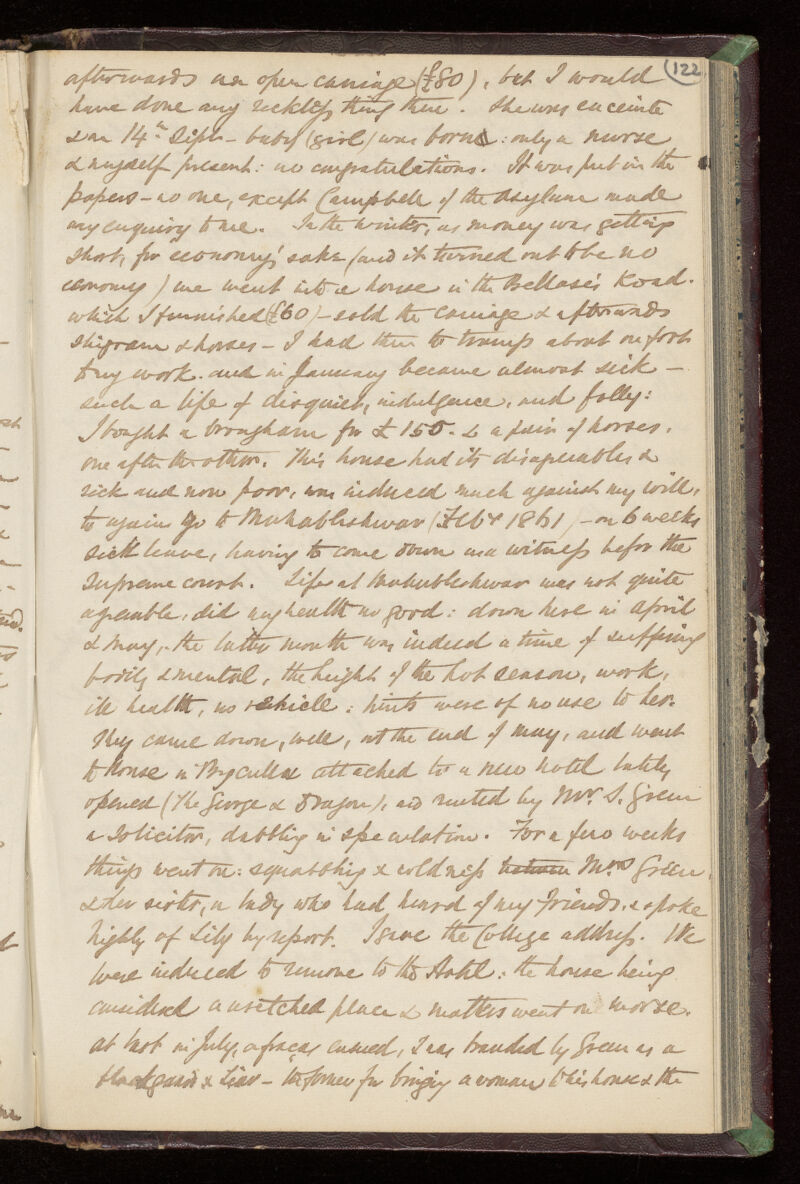 122
afterwards an open carriage (£80), but I would
have done any reckless thing then. She was enceinte
& on 14th Sept - baby (girl) was born : only a nurse
& myself present : no congratulations. It was put in the
papers - no one, except Campbell of the Asylum made
any enquiry to me. In the winter, as money was getting
short, for economy's sake (and it turned out to be no
economy) we went into a house in the Bellasis Road.
which I furnished (£60) - sold the carriage & afterwards
shigram & horses - I had then to tramp about on foot
to my work. and in January became almost sick -
such a life of disquiet, indulgence, and folly :
I bought a brougham for £150. & a pair of horses,
one after the other. This house had its disagreeables &
sick and now poor, was induced much against my will,
to again go to Mahableshwar (Feby 1861) - on 6 weeks
sick leave, having to come down as a witness before the
Supreme court. Life at Mahableshwar was not quite
agreeable, did my health no good : down here in April
& May, the latter month was indeed a time of suffering
bodily & mental, the height of the hot season, work,
ill health, no vehicle : hints were of no use to her.
They came down, well, at the end of May, and went
to house in Byculla attached to a new hotel lately
opened (The George & Dragon), and rented by Mr. S. Green
a Solicitor, dabbling in speculation. For a few weeks
things went on : squabbling & coldness between Mrs Green,
& her sister, a lady who had heard of my friends, & spoke
highly of Lily by report. I gave the College address. We
were induced to remove to the Hotel : the house being
considered a wretched place & matters went on worse.
at last in July, a fracas ensued, I was branded by Green as a
blackguard & Liar - the former for bringing a woman to his house & the